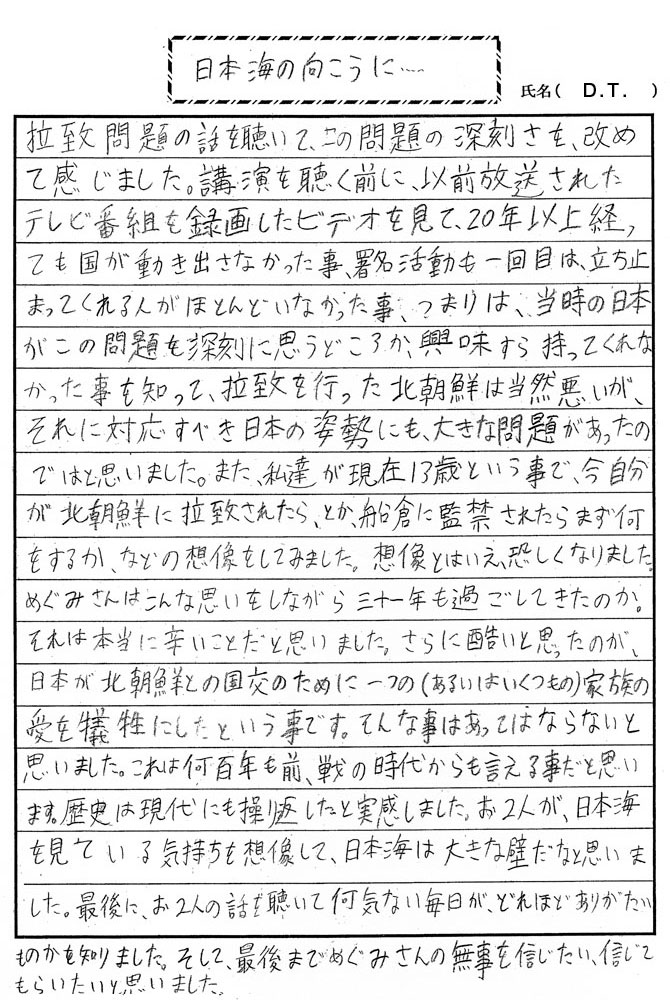 日本海の向こうに……
氏名( D.T. )
拉致問題の話を聴いて、この問題の深刻さを、改め
て感じました。講演を聴く前に、以前放送された
テレビ番組を録画したビデオを見て、20年以上経っ
ても国が動き出さなかった事、署名活動も一回目は、立ち止
まってくれる人がほとんどいなかった事、つまりは、当時の日本
がこの問題を深刻に思うどころか、興味すら持ってくれな
かった事を知って、拉致を行った北朝鮮は当然悪いが、
それに対応すべき日本の姿勢にも、大きな問題があったの
ではと思いました。また、私達が現在13歳という事で、今自分
が北朝鮮に拉致されたら、とか、船倉に監禁されたらまず何
をするか、などの想像をしてみました。想像とはいえ、恐しくなりました。
めぐみさんはこんな思いをしながら三十一年も過ごしてきたのか。
それは本当に辛いことだと思いました。さらに酷いと思ったのが、
日本が北朝鮮との国交のために一つの(あるいはいくつもの)家族の
愛を犠牲にしたという事です。そんな事はあってはならないと
思いました。これは何百年も前、戦の時代からも言える事だと思い
ます。歴史は現代にも操り返したと実感しました。お2人が、日本海
を見ている気持ちを想像して、日本海は大きな壁だなと思いま
した。最後に、お2人の話を聴いて何気ない毎日が、どれほどありがたい
ものかを知りました。そして、最後までめぐみさんの無事を信じたい、信じて
もらいたいと思いました。